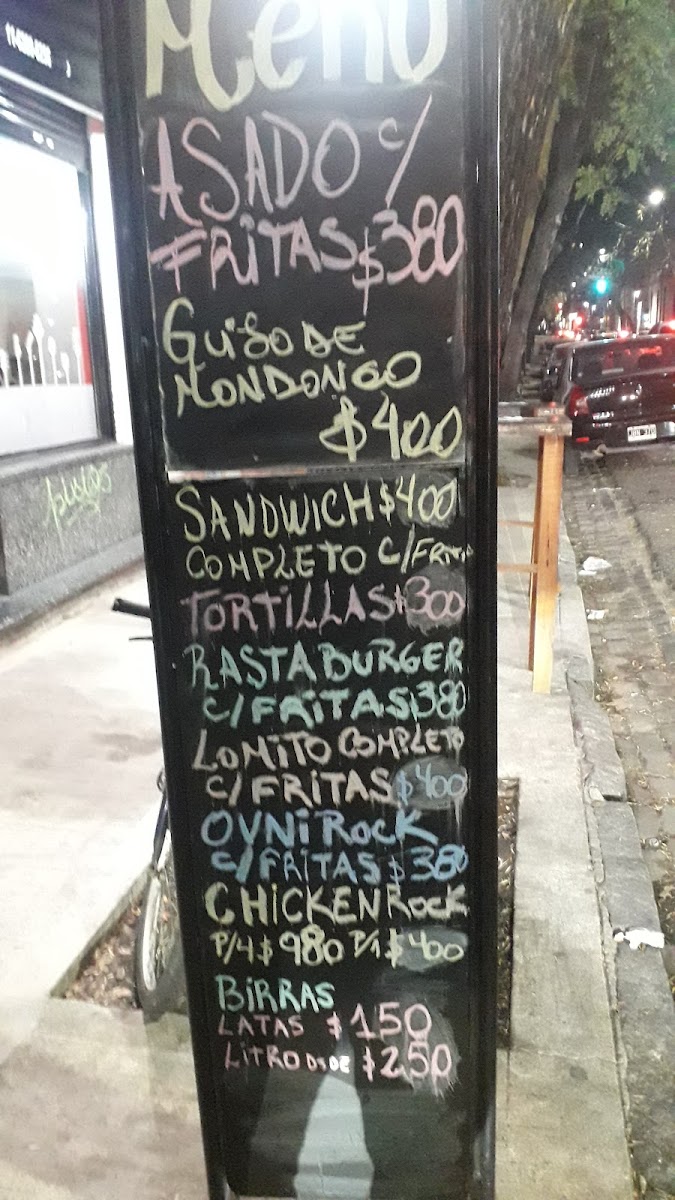 Menú
ASADO C/
FRITAS $380
GUISO DE
MONDONGO
$400
SANDWICH $400
COMPLETO C/FRITAS
TORTILLAS $300
RASTABURGER
C/FRITAS $380
LOMITO COMPLETO
C/FRITAS $400
OVNI ROCK
C/FRITAS $380
CHICKEN ROCK
P/4 $980 P/1 $400
BIRRAS
LATAS $150
LITRO DSDE $250